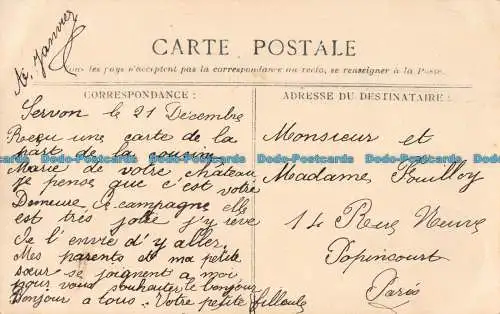 A. Janvier
CARTE POSTALE
Tous les pays n'acceptent pas la correspondance au recto, se renseigner à la Poste.
CORRESPONDANCE :
Servon le 21 Décembre
Reçu une carte de la
part de la cousine
Marie de votre château
Je pense que c'est votre
Demeure de campagne elle
est très jolie j'y rêve
Je l'envie d'y aller.
Mes parents et ma petite
sœur se joignent a moi
pour vous souhaiter le bonjour
Bonjour a tous. Votre petite filleule
ADRESSE DU DESTINATAIRE :
Monsieur et
Madame Fouilloy
14 Rue Neuve
Popincourt
Paris
Dodo-Postcards Dodo-Postcards Dodo-Postcards Dodo-Postcards Dodo-Postcards